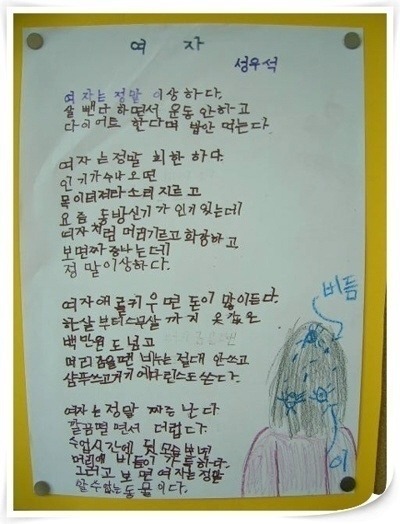 여 자
성우석
여자는 정말 이상하다.
살 뺀다 하면서 운동 안하고
다이어트 한다며 밥만 먹는다.
여자는 정말 희한 하다.
인기가수나오면
목이터져라소리지르고
요즘 동방신기가 인기있는데
여자처럼 머리기르고 화장하고
보면짜증나는데
정말이상하다.
여자애들키우면 돈이 많이든다.
한살부터스무살 까지 옷값은
백만원 도넘고
머리감을땐 비누는 절대 안쓰고
샴푸쓰고거기에다린스도쓴다.
여자는 정말 짜증난다
깔끔떨면서 더럽다.
수업시간에 뒷모습보면
머리에 비듬이 가득하다.
그러고 보면 여자는정말
알수없는동물이다.
비듬
이